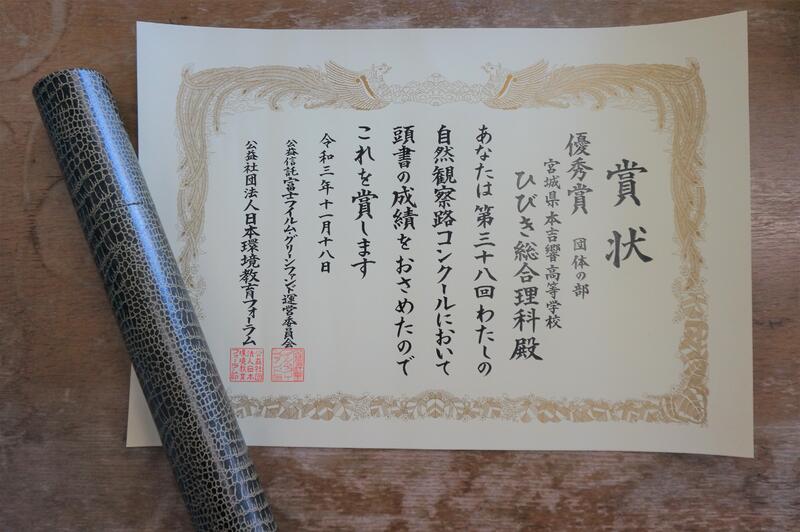 賞状
優秀賞 団体の部
宮城県本吉響高等学校
ひびき総合理科殿
あなたは第三十八回わたしの
自然観察路コンクールにおいて
頭書の成績をおさめたので
これを賞します
令和三年十一月十八日
公益信託富士フイルム・グリーンファンド運営委員会
公益社団法人日本環境教育フォーラム